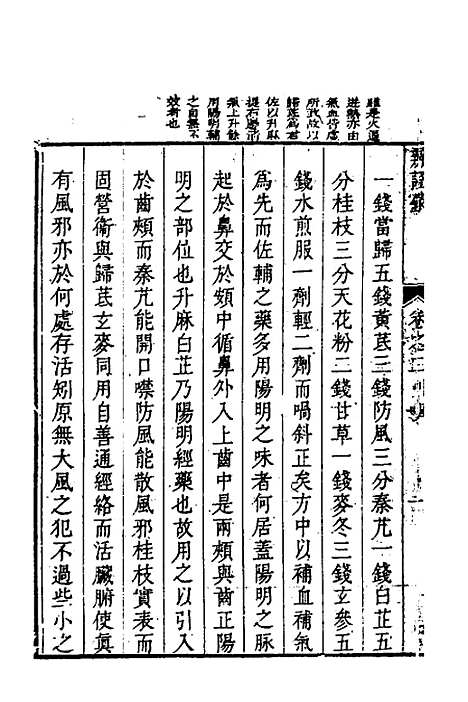 雖是火邉
進熱亦由
氣血停虚
所致故以
歸芪爲君
佐以升麻
提右慶消
氣上升餘
用陽明輔
之自無不
效者也
辨證錄
卷之二
一錢當歸五錢黄芪三錢防風三分秦艽一錢白芷五
分桂枝三分天花粉二錢甘草一錢麥冬三錢玄參五
錢水煎服一劑輕二劑而喎斜正矣方中以補血補氣
爲先而佐輔之藥多用陽明之味者何居蓋陽明之脉
起於鼻交於頞中循鼻外入上齒中是兩頰與齒正陽
明之部位也升麻白芷乃陽明經藥也故用之以引入
於齒頰而秦艽能開口噤防風能散風邪桂枝實表而
固營衛與歸芪玄麥同用自善通經絡而活臟腑使眞
有風邪亦於何處存活矧原無大風之犯不過些小之